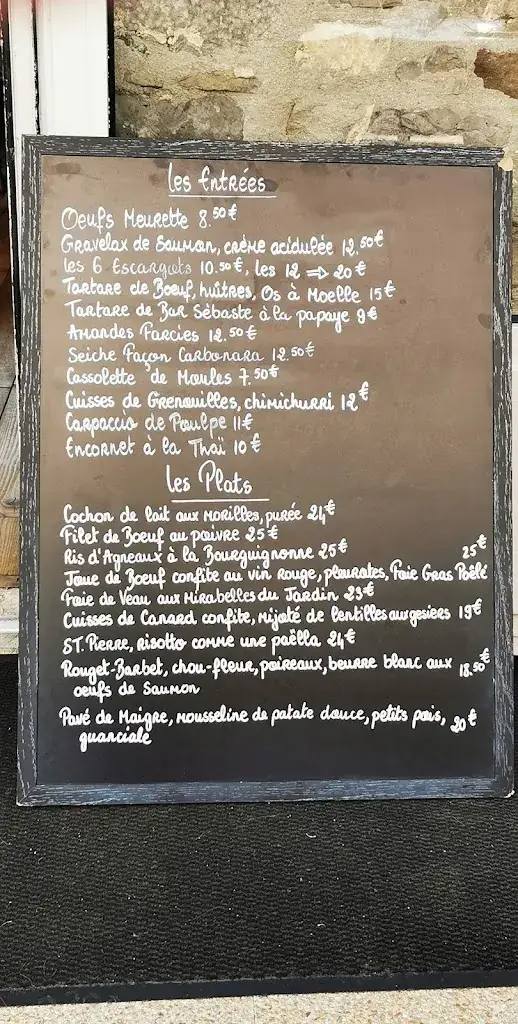 Les Entrées
Oeufs Meurette 8.50€
Gravelax de Saumon, crème acidulée 12.50€
les 6 Escargots 10.50€, les 12 => 20€
Tartare de Boeuf, huîtres, Os à Moelle 15€
Tartare de Bar Sébaste à la papaye 9€
Amandes Farcies 12.50€
Seiche Façon Carbonara 12.50€
Cassolette de Moules 7.50€
Cuisses de Grenouilles, chimichurri 12€
Carpaccio de Poulpe 11€
Encornet à la Thaï 10€
Les Plats
Cochon de lait aux morilles, purée 24€
Filet de Boeuf au poivre 25€
Ris d'Agneaux à la Bourguignonne 25€
Joue de Boeuf confite au vin rouge, pleurotes, Foie Gras Poêlé 25€
Foie de Veau aux Mirabelles du Jardin 23€
Cuisses de Canard confite, mijoté de lentilles aux gesiers 19€
ST. Pierre, risotto comme une paëlla 24€
Rouget-Barbet, chou-fleur, poireaux, beurre blanc aux 18.50€
oeufs de Saumon
Pavé de Maigre, mousseline de patate douce, petits pois, 20€
guanciale